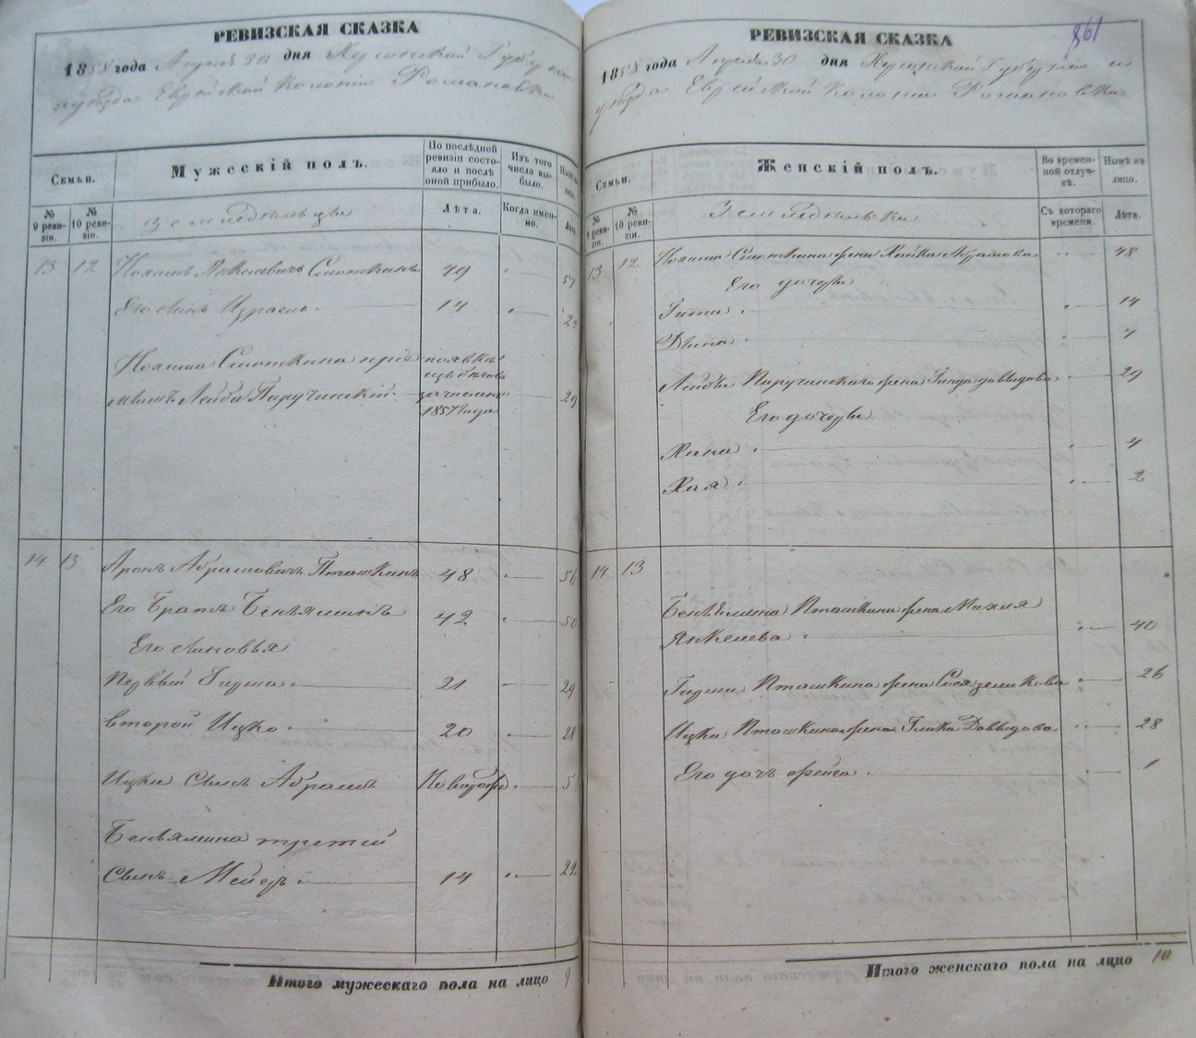 РЕВИЗСКАЯ СКАЗКА
1858 года Апреля 30 дня Губернии
уезда Еврейской Колонии Романовки
Семьи.
Мужескій полъ.
По послѣдней ревизіи состояло и послѣ оной прибыло.
Изъ того числа выбыло.
№ 9 ревизіи.
№ 10 ревизіи.
Земледѣльцы
Лѣта.
Когда именно.
Лѣта
13 12 Янкелевичъ Слоткинъ 49 57
Его сынъ Израель 14 22
Слоткина
Лейба Пиручинскій 29
зачислен
1857 года
14 13 Аронъ Абрамовичъ Пташкинъ 48 56
Его Братъ Беньяминъ 42 50
Его сыновья
Первый Гирша 21 29
Второй Ицко 20 28
Ицки Сынъ Абрамъ Новорож 5
Беньямина третій
Сынъ Мейеръ 14 22
Итого мужескаго пола на лицо 9
861
РЕВИЗСКАЯ СКАЗКА
1858 года Апреля 30 дня Губерніи и
уезда Еврейской Колоніи Романовка
Семьи.
Женскій полъ.
Во временной отлучкѣ.
Нынѣ на лицо.
№ 9 ревизіи.
№ 10 ревизіи.
Земледѣльки
Съ котораго времени.
Лѣта.
13 12 Слоткина жена Хайка Абрамова 48
Его дочери
Гита 14
Дына 7
Лейбы Пиручинскаго жена Давыдова 29
Его дочери
Хана 4
Хая 2
14 13
Беньямина Пташкина жена Михля
Янкелева 40
Гирши Пташкина жена 26
Ицки Пташкина жена Глика Давыдова 28
Его дочь Фейга 1
Итого женскаго пола на лицо 10